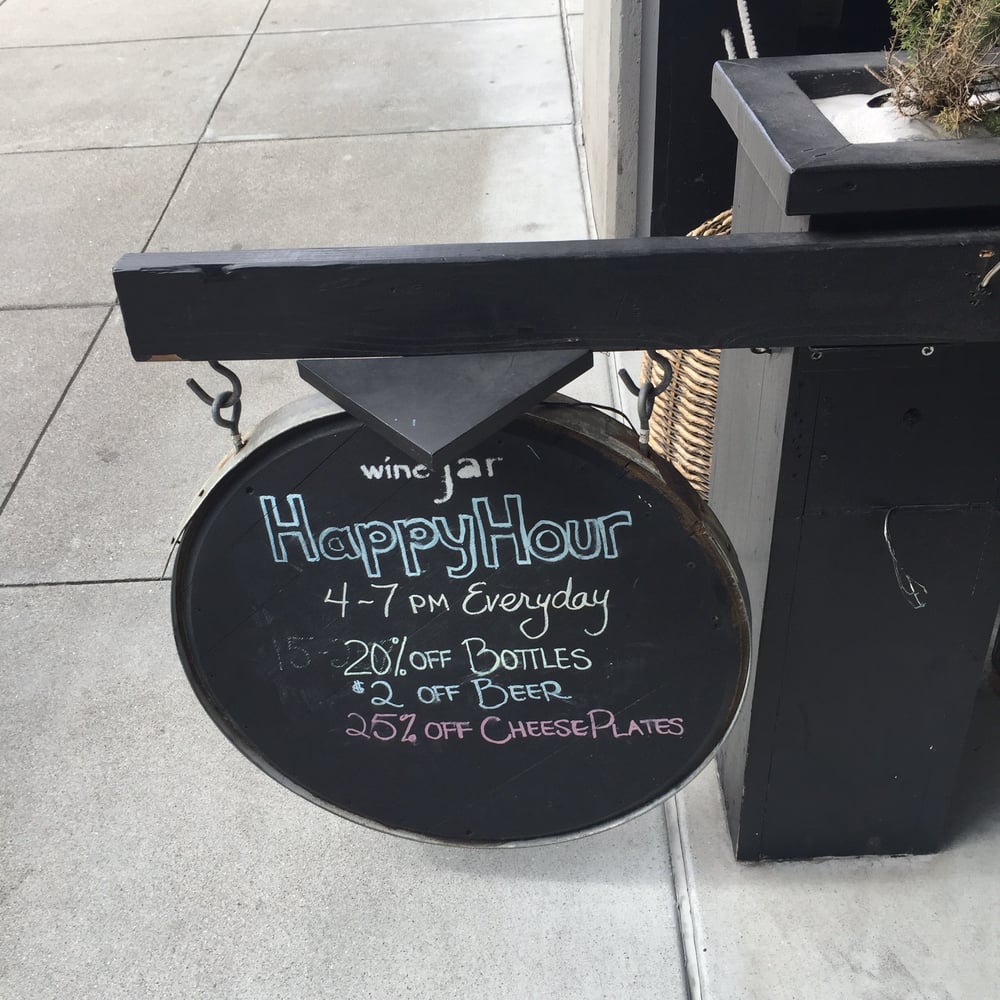 wine jar
Happy Hour
4-7 PM Everyday
20% OFF BOTTLES
$2 OFF BEER
25% OFF CHEESE PLATES